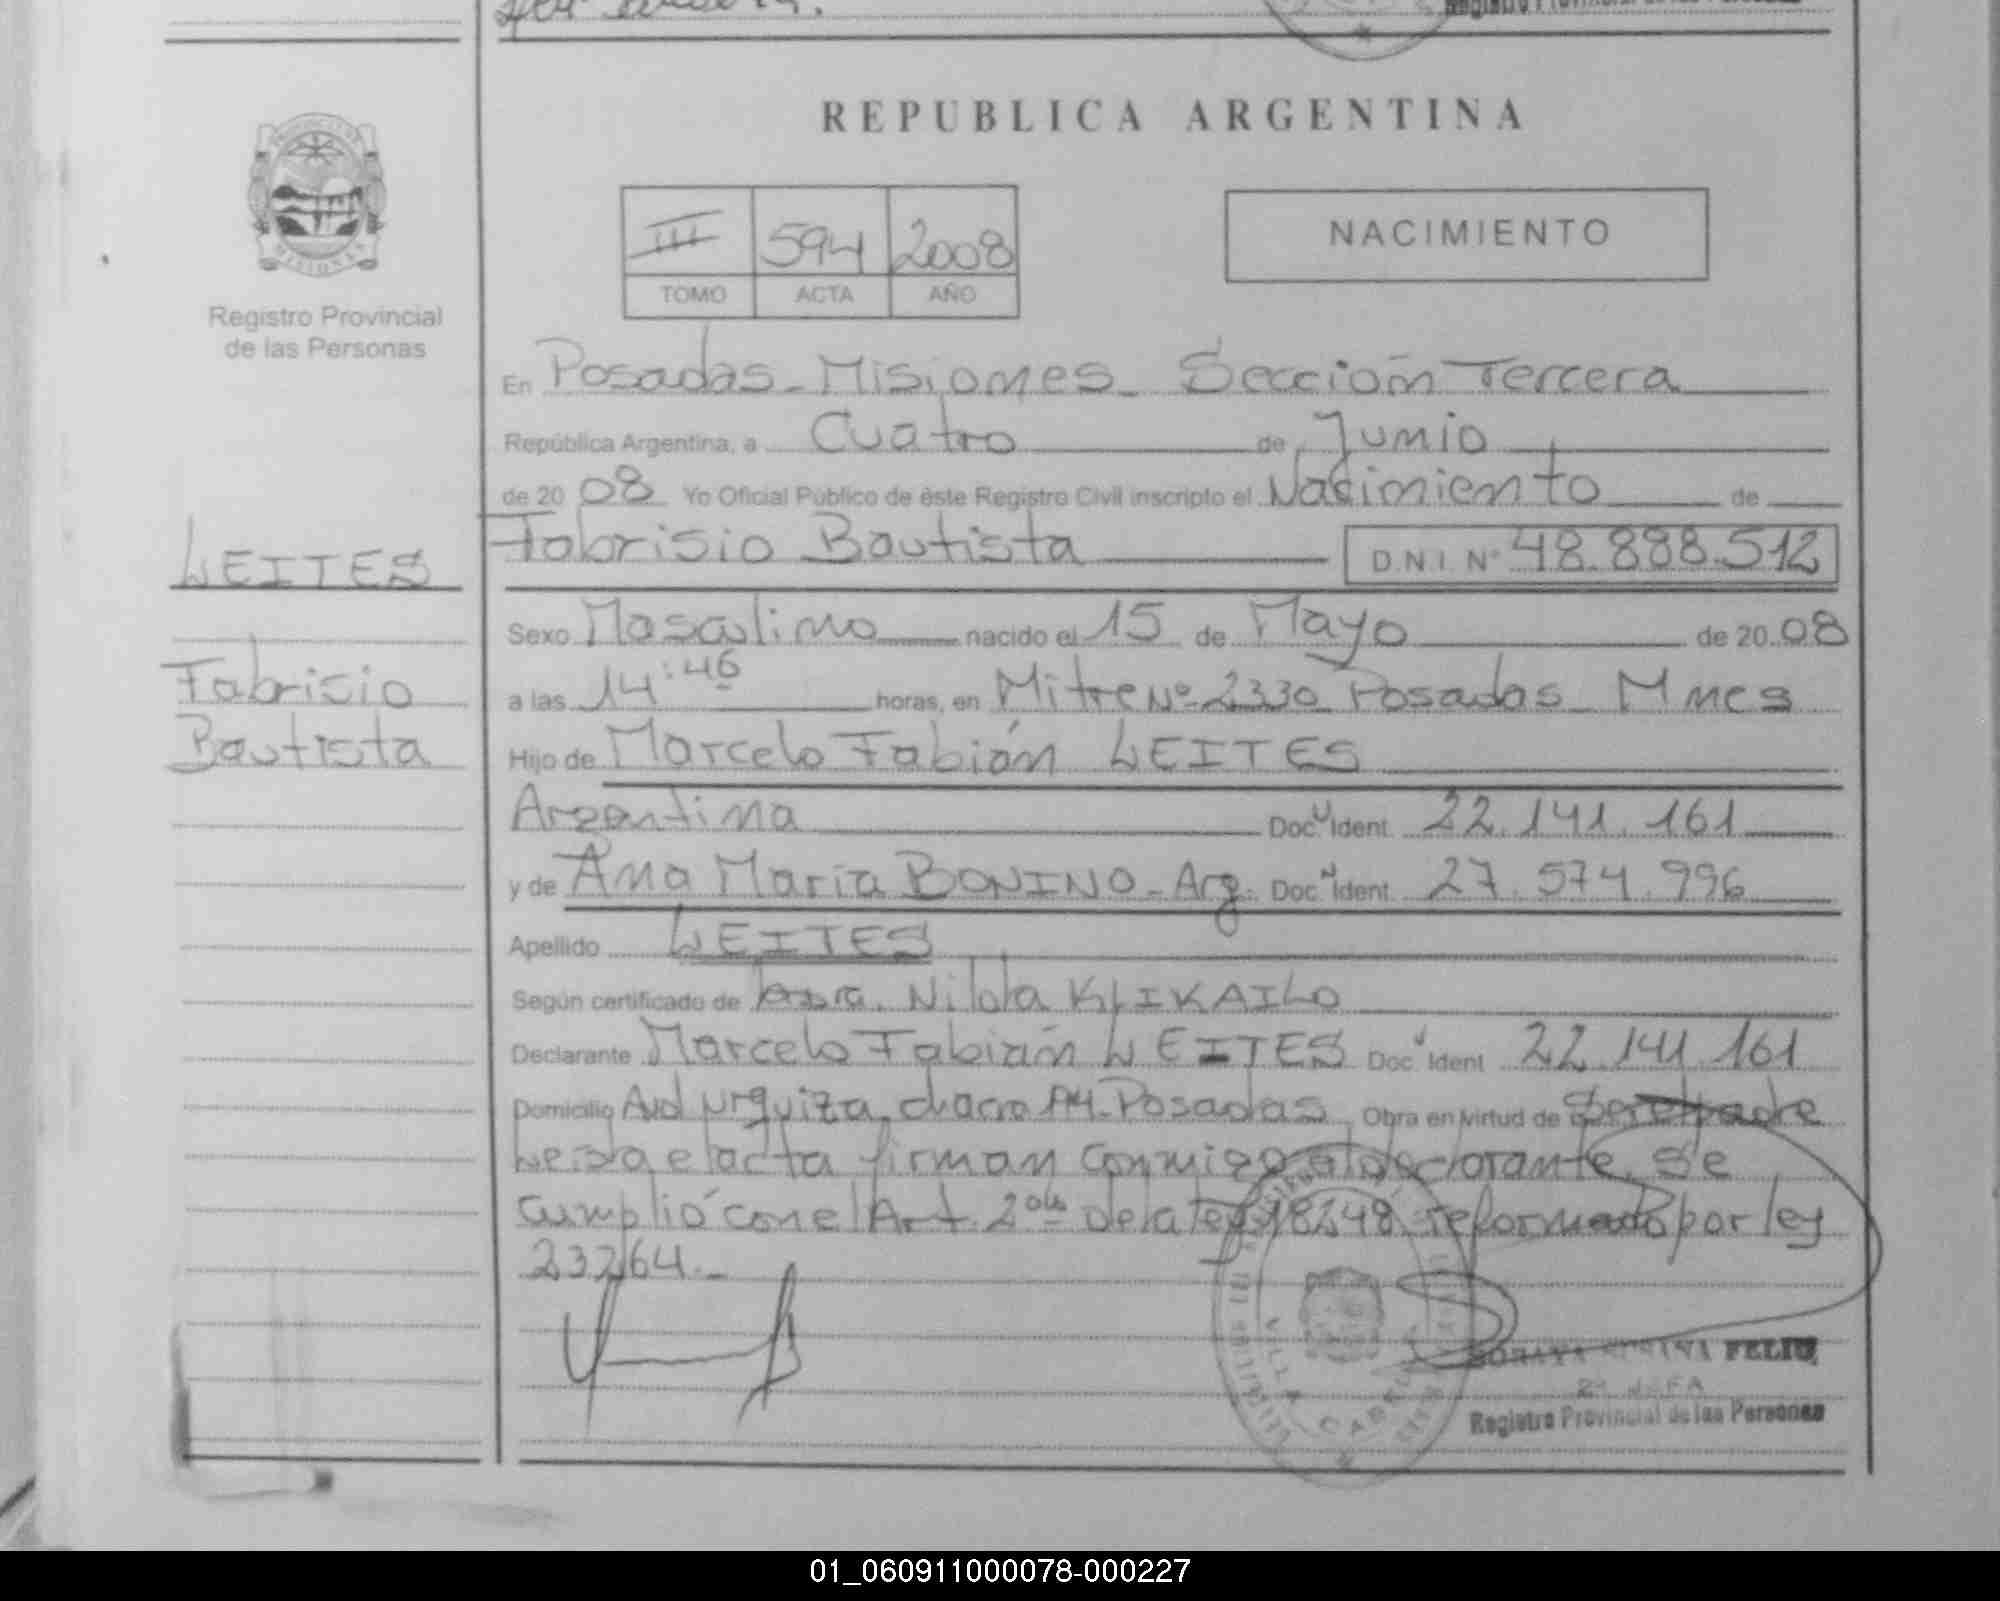 REPUBLICA ARGENTINA
PROVINCIA DE
MISIONES
Registro Provincial
de las Personas
III 594 2008
TOMO ACTA AÑO
NACIMIENTO
En Posadas - Misiones - Sección Tercera
República Argentina, a Cuatro de Junio
de 2008 Yo Oficial Público de éste Registro Civil inscripto el Nacimiento de
Fabrisio Bautista D.N.I. Nº 48.888.512
LEITES
Fabrisio
Bautista
Sexo Masculino nacido el 15 de Mayo de 2008
a las 14:46 horas, en Mitre Nº 2330 Posadas - Mnes
Hijo de Marcelo Fabián LEITES
Argentina Doc. Ident. 22.141.161
y de Ana Maria BONINO - Arg. Doc. Ident. 27.574.996
Apellido LEITES
Según certificado de Nilda KLIKAILO
Declarante Marcelo Fabián LEITES Doc. Ident. 22.141.161
Domicilio Avd Urquiza, chacra Posadas Obra en virtud de
Leida el acta firman conmigo el declarante. Se
cumplió con el Art. 2 de la ley 18248 reformado por ley
23264.-
VILLA CABELLO
FELIU
2ª JEFA
Registro Provincial de las Personas
01_060911000078-000227